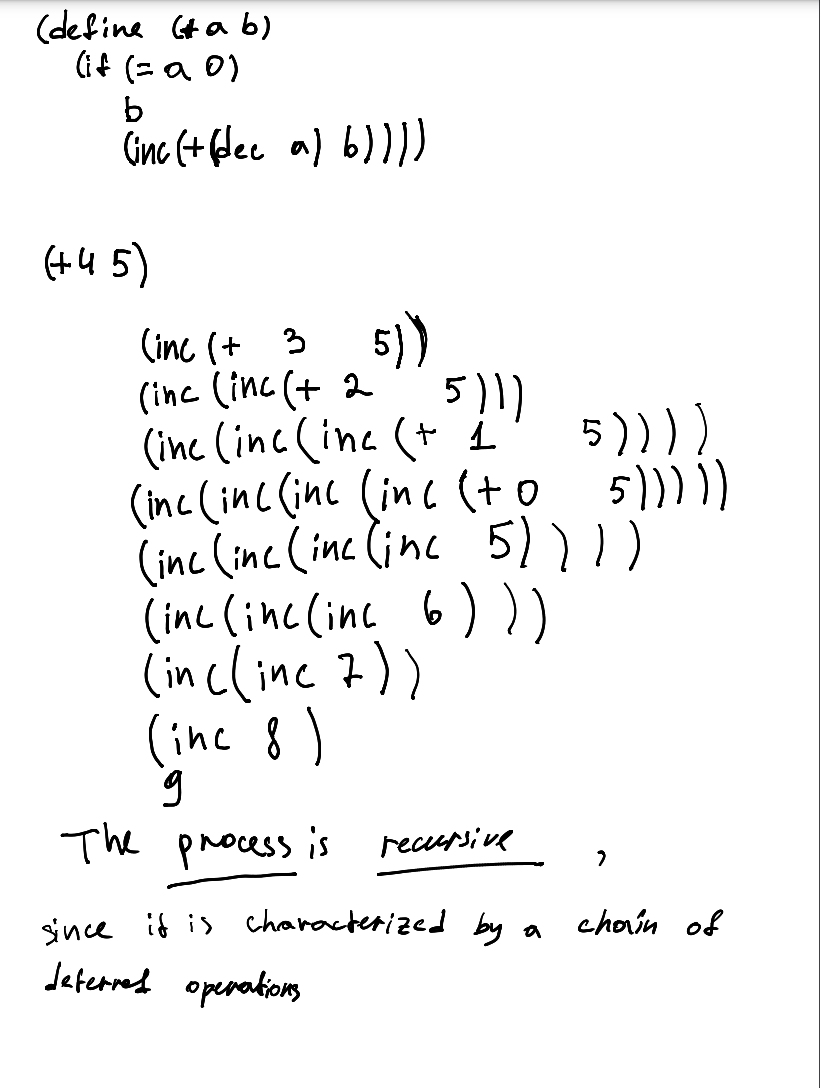 (define (+ a b)
(if (= a 0)
b
(inc (+ (dec a) b))))
(+ 4 5)
(inc (+ 3 5))
(inc (inc (+ 2 5)))
(inc (inc (inc (+ 1 5))))
(inc (inc (inc (inc (+ 0 5)))))
(inc (inc (inc (inc 5))))
(inc (inc (inc 6)))
(inc (inc 7))
(inc 8)
9
The process is recursive ,
since it is characterized by a chain of
deferred operations